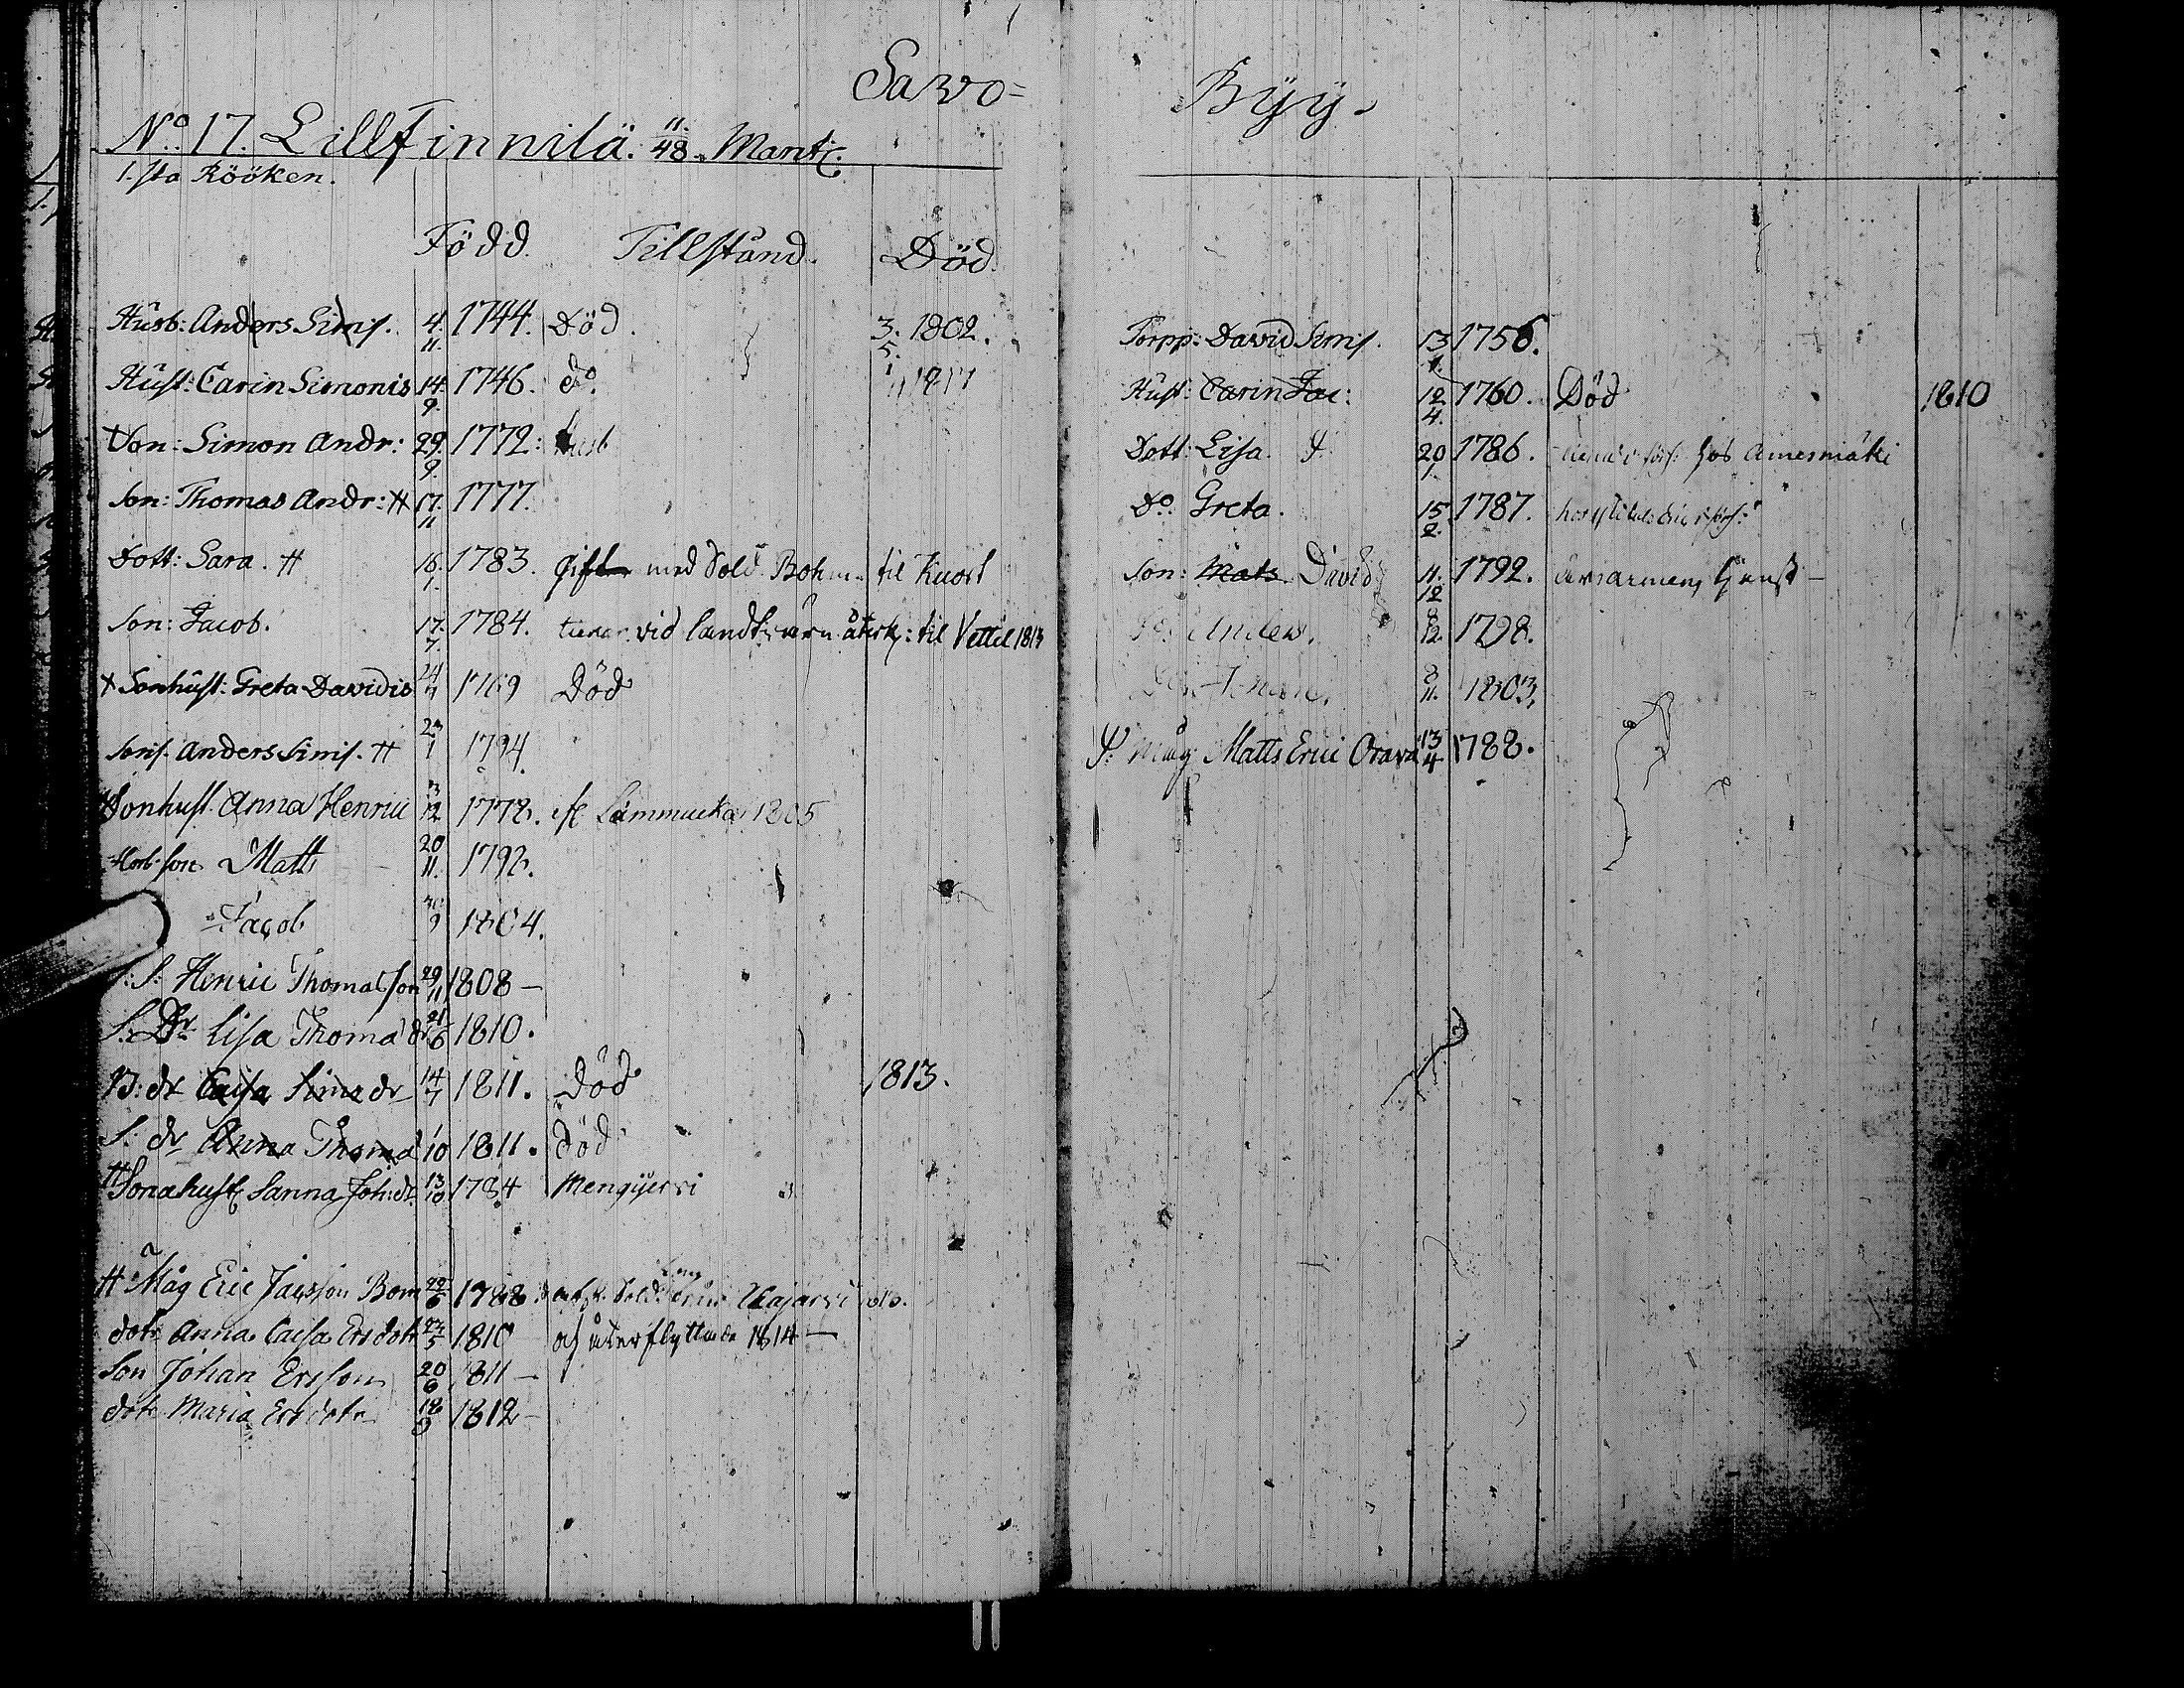 Savo=
No: 17. Lillfinnilä. 11/48. Mantl.
1.sta Rööken.
Född. Tillstånd. Död.
Husb: Anders Sims. 4/11. 1744. Död. 3/5. 1802.
Hust: Carin Simonis 14/9. 1746. do.
Son: Simon Andr: 29/9. 1772:
Son: Thomas Andr: # 17/11 1777.
Dott: Sara. # 16/1. 1783. gift med Sold. Bohm til Kuort
Son: Jacob. 17/7. 1784. vid landtvärn återk: til Vettil 1813
+ Sonhust: Greta Davidis 24/7 1769 Död
Sons. Anders Sims. # 1794.
Sonhust. Anna Henrici 3/12 1772. 1805
Husb. Son Matts 20/11. 1792.
Jacob 1804.
S: S: Henric Thomasson 29/11 1808 –
S: Dr Lisa Thoma dr 21/6 1810.
B: dr Caisa Sims dr 14/7 1811. Död 1813.
S: dr Anna Thomæ 1/10 1811. Död
# Sonahust Sanna Joh: dr 13/10 1784 Mengyervi
# Måg Eric Jacsson Bom 22/6 1788
dotr Anna Caisa Ersdotr 23/5 1810 och återflyttade 1814 –
Son Johan Ersson 20/6 1811 –
dotr Maria Ersdotr 18/9 1812 –
Byy.
Torpp: David Sims. 13 1756.
Hust: Carin Jac: 12/4. 1760. Död 1810
Dott: Lisa. 20/1. 1786. hos
Do: Greta. 15/2. 1787.
Son: Mats David 11/12 1792.
8/12. 1798.
8/11. 1803.
Måg Matts Erici Orava 13/4 1788.